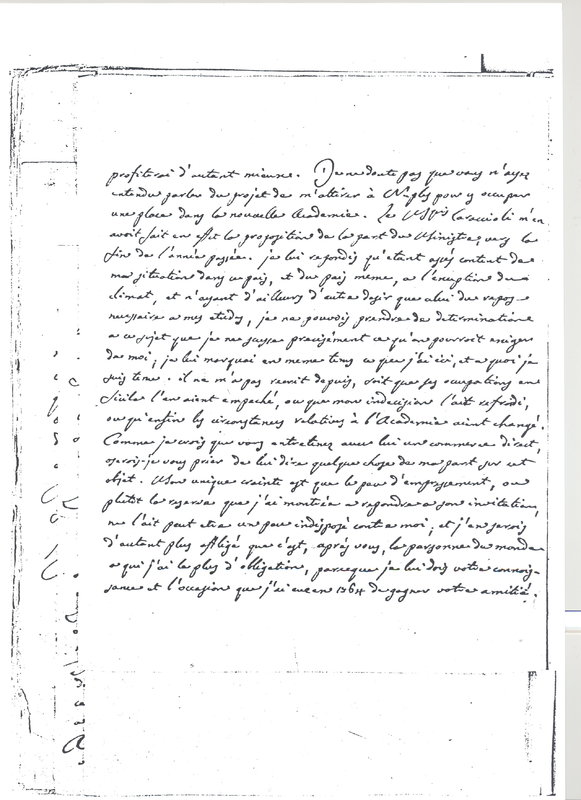 profiterai d'autant mieux. Je ne doute pas que vous n'ayez
entendu parler du projet de m'attirer à Naples pour y occuper
une place dans la nouvelle Academie. Le Caraccioli m'en
avoit fait en effet la proposition de la part du Ministre, vers la
fin de l'année passée. je lui repondis qu'etant assés content de
ma situation dans ce païs, et du païs meme, a l'exception du
climat, et n'ayant d'ailleurs d'autre desir que celui du repos
necessaire a mes etudes, je ne pouvois prendre de determination
a ce sujet que je ne scusse precisément ce qu'on pourroit exiger
de moi; je lui marquai en meme tems ce que j'ai ici, et a quoi je
suis tenu. il ne m'a pas recrit depuis, soit que ses occupations en
Sicile l'en aient empeché, ou que mon indecision l'ait refroidi,
ou qu'enfin les circonstances relatives à l'Academie aient changé.
Comme je crois que vous entretenez avec lui un commerce direct,
oserois-je vous prier de lui dire quelque chose de ma part sur cet
objet. Mon unique crainte est que le peu d'empressement, ou
plutôt la reserve que j'ai montrée a repondre a son invitation,
ne l'ait peut etre un peu indisposé contre moi; et j'en serois
d'autant plus affligé que c'est, après vous, la personne du monde
a qui j'ai le plus d'obligation, parceque je lui dois votre connois-
sance et l'occasion que j'ai eue en 1764 de gagner votre amitié.